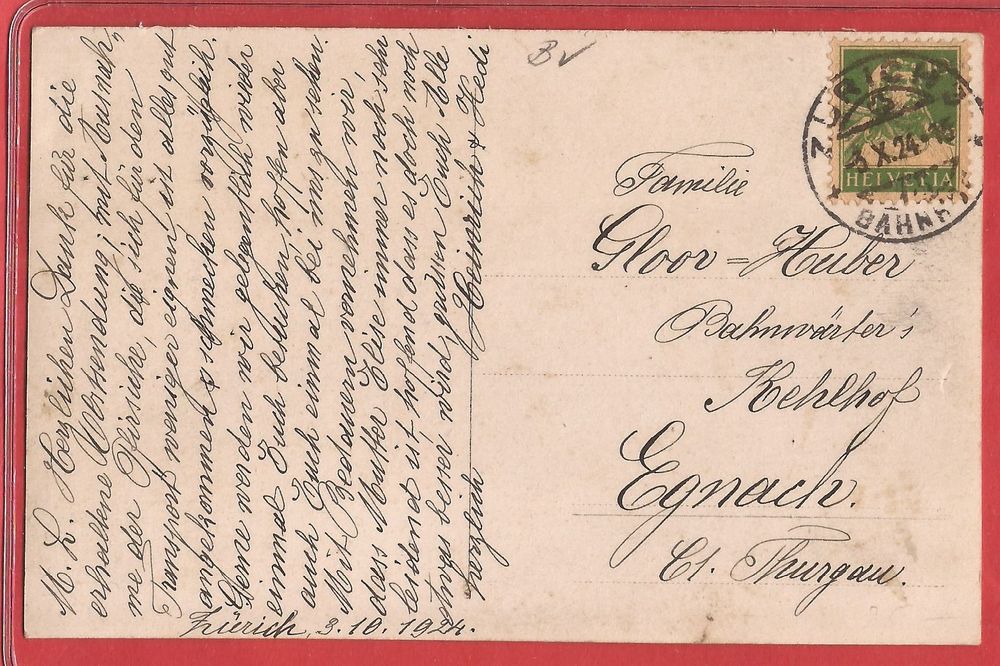 M. L. Herzlichen Dank für die
erhaltene Obstsendung, mit Ausnah-
me der Pfirsiche, die sich für den
Transport weniger eignen ist alles gut
angekommen & schmeckten vorzüglich.
Gerne werden wir gelegentlich wieder
einmal Euch besuchen, hoffen aber
auch Euch einmal bei uns zu sehen.
Mit Bedauern vernehmen wir,
dass Mutter Elise immer noch sehr
leidend ist, hoffend dass es doch noch
etwas besser wird, grüssen Euch Alle
herzlich Heinrich & Hedi
Zürich, 3.10.1924.
BV
ZÜRICH
3.X.24
BAHNH
HELVETIA
Familie
Gloor=Huber
Bahnwärter's
Kehlhof
Egnach.
Ct. Thurgau.